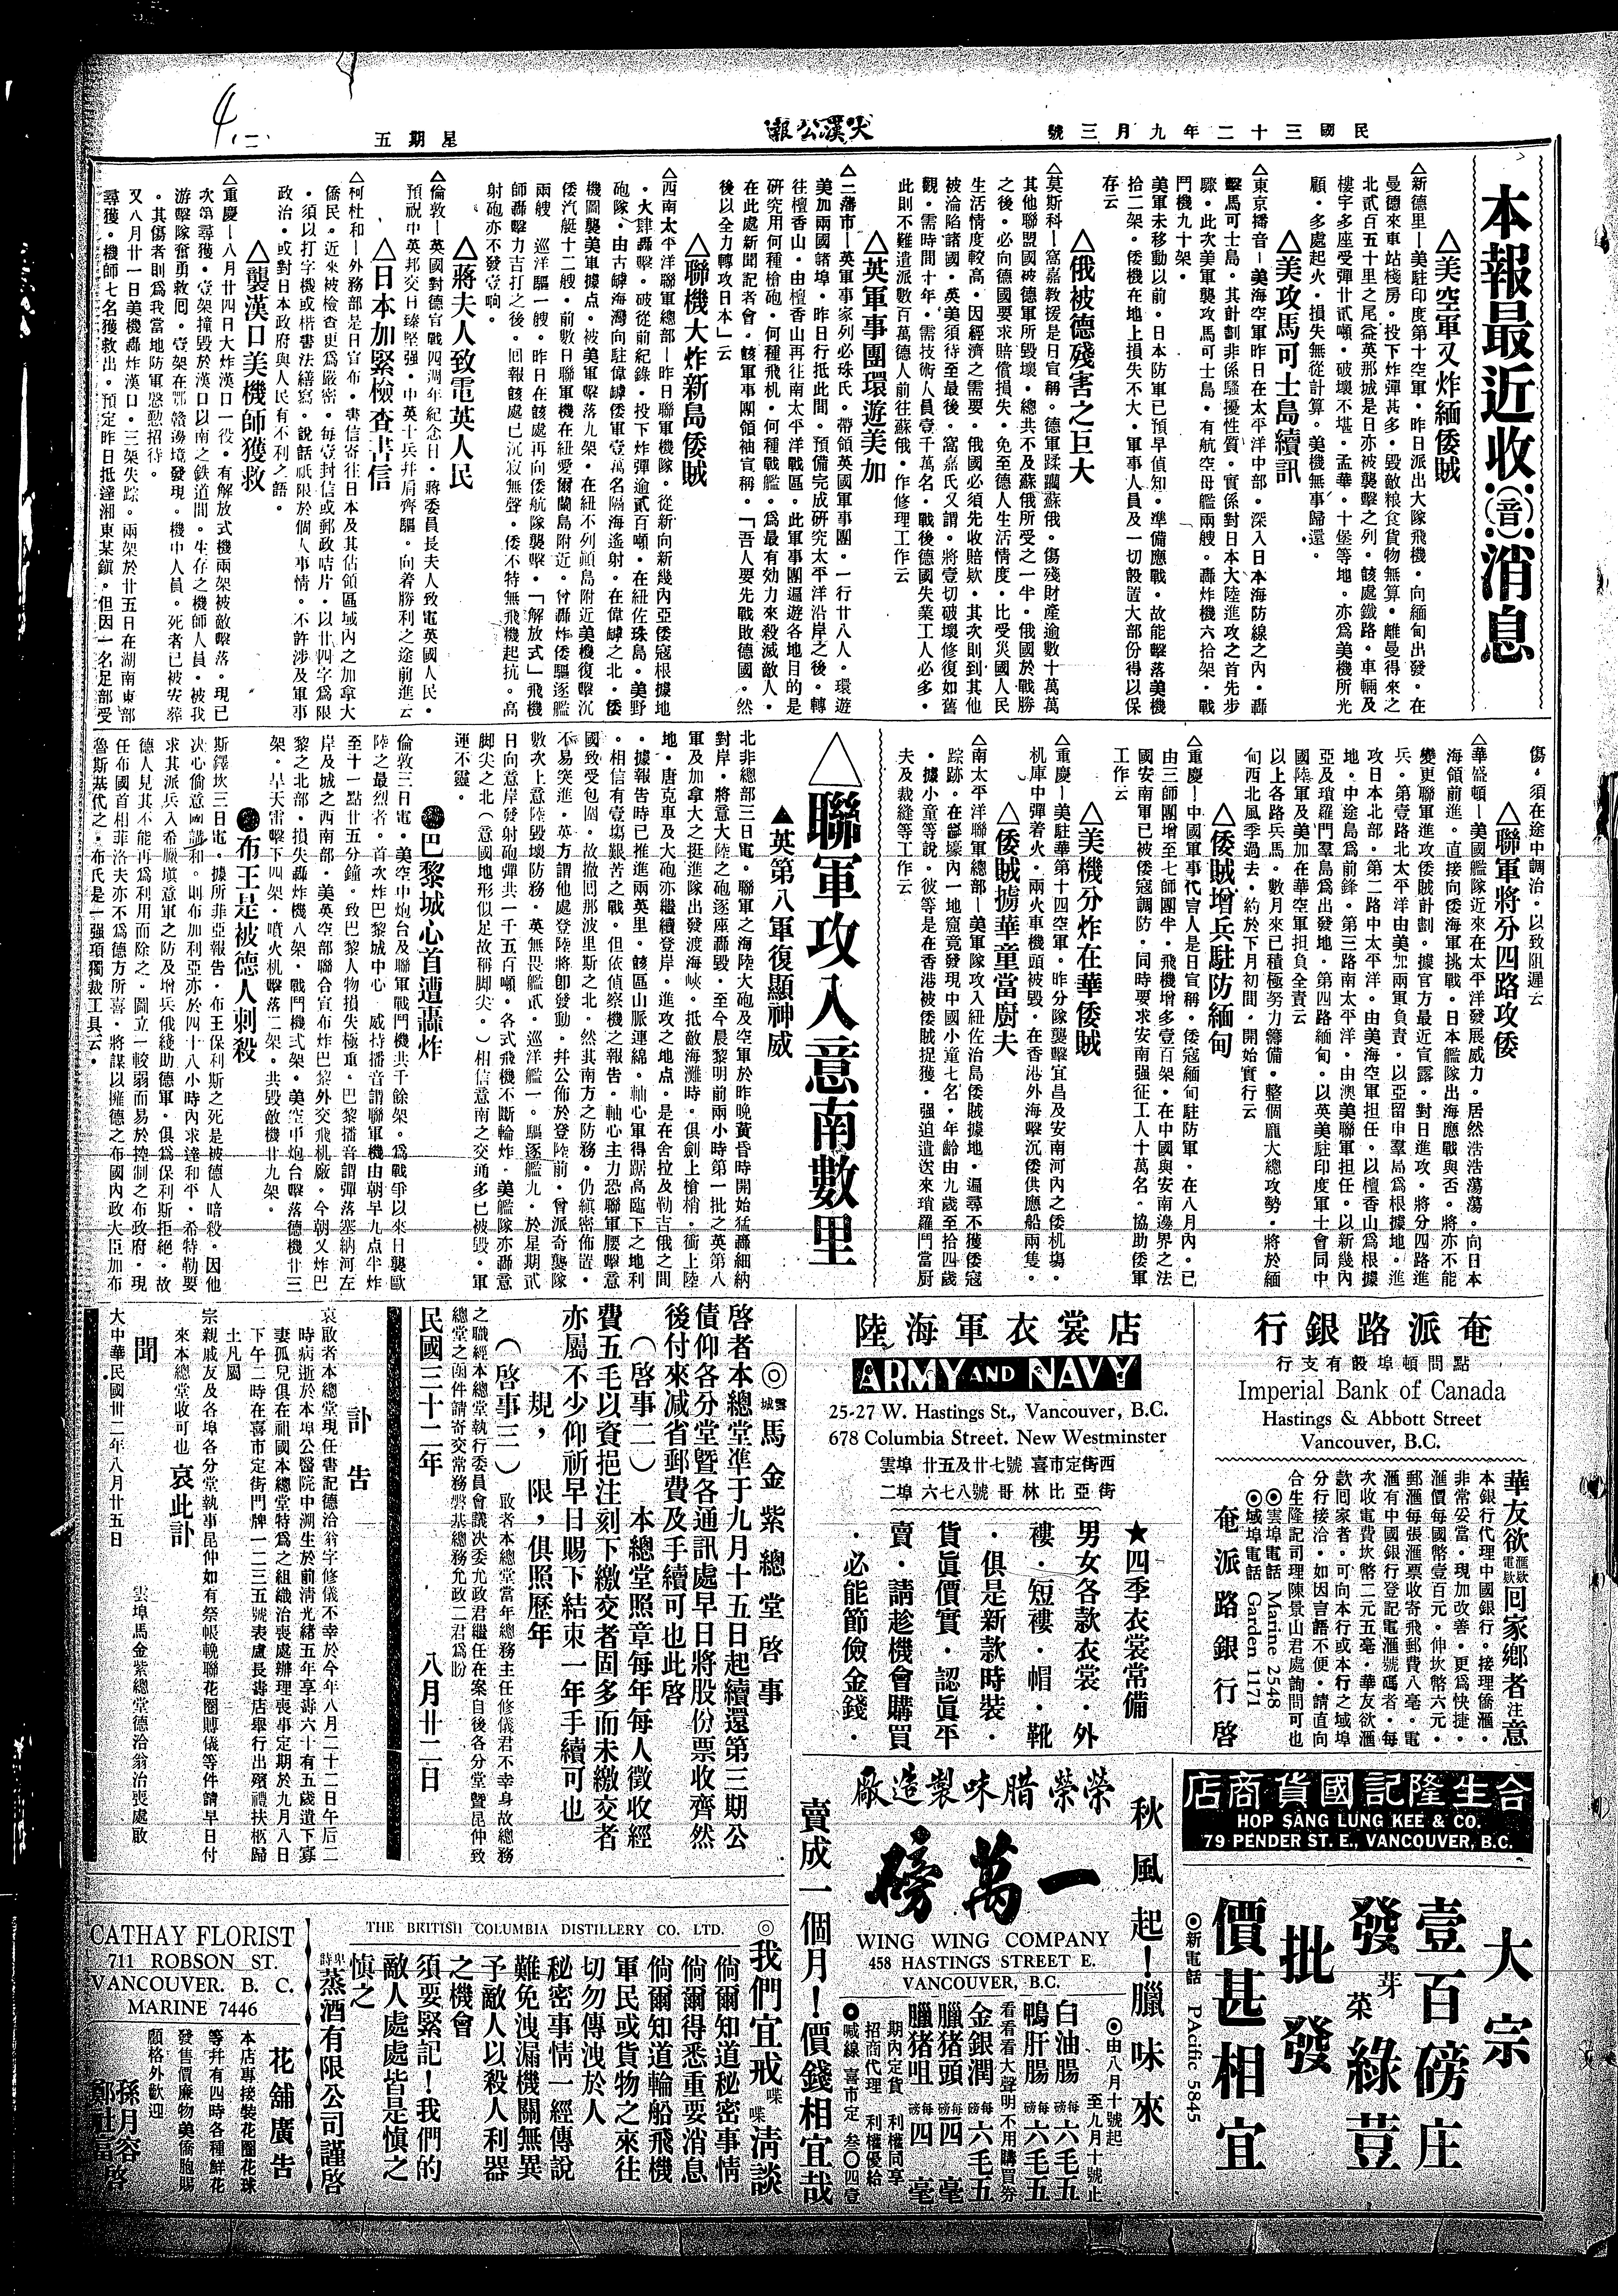 民國三十二年九月三號
大漢公報
星期五
二
本報最近收(音)消息
△美空軍又炸緬倭賊
△新德里—美駐印度第十空軍・昨日派出大隊飛機・向緬甸出發・在
曼德來車站棧房・投下炸彈甚多・毀敵粮食貨物無算・離曼得來之
北貳百五十里之尾益英那城是日亦被襲擊之列・該處鐵路・車輛及
樓宇多座受彈廿貳噸・破壞不堪・孟華・十堡等地・亦爲美機所光
顧・多處起火・損失無從計算・美機無事歸還。
△美攻馬可士島續訊
△東京播音—美海空軍昨日在太平洋中部・深入日本海防線之內・轟
擊馬可士島・其計劃非係騷擾性質・實係對日本大陸進攻之首先步
驟・此次美軍襲攻馬可士島・有航空母艦兩艘・轟炸機六拾架・戰
鬥機九十架・
美軍未移動以前・日本防軍已預早偵知・準備應戰・故能擊落美機
拾二架・倭機在地上損失不大・軍事人員及一切設置大部份得以保
存云
△俄被德殘害之巨大
△莫斯科—窩嘉教援是日宣稱・德軍蹂躪蘇俄・傷殘財產逾數十萬萬
其他聯盟國被德軍所毀壞・總共不及蘇俄所受之一半・俄國於戰勝
之後・必向德國要求賠償損失・免至德人生活情度・比受災國人民
生活情度較高・因經濟之需要・俄國必須先收賠欵・其次則到其他
被淪陷諸國・英美須待至最後・窩嘉氏又謂・將壹切破壞修復如舊
觀・需時間十年・需技術人員壹千萬名・戰後德國失業工人必多・
此則不難遣派數百萬德人前往蘇俄・作修理工作云
△英軍事團環遊美加
△二藩市—英軍事家列必珠氏・帶領英國軍事團・一行廿八人・環遊
美加兩國諸埠・昨日行抵此間・預備完成研究太平洋沿岸之後・轉
往檀香山・由檀香山再往南太平洋戰區・此軍事團遍遊各地目的是
研究用何種槍砲・何種飛机・何種戰艦・爲最有効力來殺滅敵人・
在此處新聞記者會・該軍事團領袖宣稱・「吾人要先戰敗德國・然
後以全力轉攻日本」云
△聯機大炸新島倭賊
△西南太平洋聯軍總部—昨日聯軍機隊・從新向新幾內亞倭寇根據地
・大肆轟擊・破從前紀錄・投下炸彈逾貳百噸・在紐佐珠島・美野
砲隊・由古罅海灣向駐偉罅倭軍壹萬名隔海遙射・在偉罅之北・倭
機圖襲美軍據点・被美軍擊落九架・在紐不列顛島附近美機復擊沉
倭汽艇十二艘・前數日聯軍機在紐愛爾蘭島附近・曾轟炸倭驅逐艦
兩艘 巡洋驅一艘・昨日在該處再向倭航隊襲擊・「解放式」飛機
師轟擊力吉打之後・回報該處已沉寂無聲・倭不特無飛機起抗・高
射砲亦不發壹响。
△蔣夫人致電英人民
△倫敦—英國對德官戰四週年紀念日・蔣委員長夫人致電英國人民・
預祝中英邦交日臻堅强・中英士兵幷肩齊驅・向着勝利之途前進云
△日本加緊檢查書信
△柯杜和—外務部是日宣布・書信寄往日本及其佔領區域內之加拿大
僑民・近來被檢查更爲嚴密・每壹封信或郵政咭片・以廿四字爲限
・須以打字機或楷書法繕寫・說話祇限於個人事情・不許涉及軍事
政治・或對日本政府與人民有不利之語・
△襲漢口美機師獲救
△重慶—八月廿四日大炸漢口一役・有解放式機兩架被敵擊落・現已
次第尋獲・壹架撞毀於漢口以南之鉄道間・生存之機師人員・被我
游擊隊奮勇救囘・壹架在鄂贛邊境發現・機中人員・死者已被安葬
・其傷者則爲我當地防軍慇懃招待・
又八月廿一日美機轟炸漢口・三架失踪・兩架於廿五日在湖南東部
尋獲・機師七名獲救出・預定昨日抵達湘東某鎭・但因一名足部受
傷・須在途中調治・以致阻遲云
△聯軍將分四路攻倭
△華盛頓—美國艦隊近來在太平洋發展威力・居然浩浩蕩蕩・向日本
海領前進・直接向倭海軍挑戰・日本艦隊出海應戰與否・將亦不能
變更聯軍進攻倭賊計劃・據官方最近宣露・對日進攻・將分四路進
兵・第壹路北太平洋由美加兩軍負責・以亞留申羣島爲根據地・進
攻日本北部・第二路中太平洋・由美海空軍担任・以檀香山爲根據
地・中途島爲前鋒・第三路南太平洋・由澳美聯軍担任・以新幾內
亞及瑣羅門羣島爲出發地・第四路緬甸・以英美駐印度軍士會同中
國陸軍及美加在華空軍担負全責云
以上各路兵馬・數月來已積極努力籌備・整個龐大總攻勢・將於緬
甸西北風季過去・約於下月初間・開始實行云
△倭賊增兵駐防緬甸
△重慶—中國軍事代言人是日宣稱・倭寇緬甸駐防軍・在八月內・已
由三師團增至七師團半・飛機增多壹百架・在中國與安南邊界之法
國安南軍已被倭寇調防・同時要求安南强征工人十萬名・協助倭軍
工作云
△美機分炸在華倭賊
△重慶—美駐華第十四空軍・昨分隊襲擊宜昌及安南河內之倭机塲・
机庫中彈着火・兩火車機頭被毀・在香港外海擊沉倭供應船兩隻・
△倭賊擄華童當厨夫
△南太平洋聯軍總部—美軍隊攻入紐佐治島倭賊據地・遍尋不獲倭寇
踪跡・在蓼壕內一地窟竟發現中國小童七名・年齡由九歲至拾四歲
・據小童等說・彼等是在香港被倭賊捉獲・强迫遣送來瑣羅門當厨
夫及裁縫等工作云
△聯軍攻入意南數里
▲英第八軍復顯神威
北非總部三日電・聯軍之海陸大砲及空軍於昨晚黃昏時開始猛轟細納
對岸・將意大陸之砲逐座轟毀・至今晨黎明前兩小時第一批之英第八
軍及加拿大之挺進隊出發渡海峽・抵敵海灘時・俱劍上槍梢・衝上陸
地・唐克車及大砲亦繼續登岸・進攻之地点・是在舍拉及勒吉俄之間
・據報告時已推進兩英里・該區山脈連綿・軸心軍得踞高臨下之地利
・相信有壹塲艱苦之戰・但依偵察機之報告・軸心主力恐聯軍腰擊意
國致受包圍・故撤囘那波里斯之北・然其南方之防務・仍縝密佈置・
不易突進・英方謂他處登陸將卽發動・幷公佈於登陸前・曾派奇襲隊
數次上意陸毀壞防務・英無畏艦貳・巡洋艦一・驅逐艦九・於星期貳
日向意岸發射砲彈共一千五百噸・各式飛機不斷輪炸・美艦隊亦轟意
脚尖之北(意國地形似足故稱脚尖・)相信意南之交通多已被毀・軍
運不靈。
●巴黎城心首遭轟炸
倫敦三日電・美空中炮台及聯軍戰鬥機共千餘架・爲戰爭以來日襲歐
陸之最烈者・首次炸巴黎城中心 威持播音謂聯軍機由朝早九点半炸
至十一點廿五分鐘・致巴黎人物損失極重・巴黎播音謂彈落塞納河左
岸及城之西南部・美英空部聯合宣布炸巴黎外交飛机廠・今朝又炸巴
黎之北部・損失轟炸機八架・戰鬥機弍架・美空中炮台擊落德機廿三
架・早天雷擊下四架・噴火机擊落二架・共毀敵機廿九架。
●布王是被德人刺殺
斯鐸坎三日電・據所非亞報告・布王保利斯之死是被德人暗殺・因他
决心偷意國講和・則布加利亞亦於四十八小時內求達和平・希特勒要
求其派兵入希臘塡意軍之防及增兵俄綫助德軍・俱爲保利斯拒絕・故
德人見其不能再爲利用而除之・圖立一較弱而易於控制之布政府・現
任布國首相菲洛夫亦不爲德方所喜・將謀以擁德之布國內政大臣加布
魯斯基代之・布氏是一强項獨裁工具云・
奄派路銀行
點問頓埠設有支行
Imperial Bank of Canada
Hastings & Abbott Street
Vancouver, B.C.
華友欲滙欵電欵囘家鄉者注意
本銀行代理中國銀行・接理僑滙・
非常安當・現加改善・更爲快捷・
滙價每國幣壹百元・伸坎幣六元・
郵滙每張滙票收寄飛郵費八毫・電
滙有中國銀行登記電滙號碼者・每
次收電費坎幣二元五毫・華友欲滙
欵囘家者・可向本行或本行之域埠
分行接洽・如因言語不便・請直向
合生隆記司理陳景山君處詢問可也
◎雲埠電話 Marine 2548
◎域埠電話 Garden 1171
奄派路銀行啓
陸海軍衣裳店
ARMY AND NAVY
25-27 W. Hastings St., Vancouver, B.C.
678 Columbia Street. New Westminster
雲埠 廿五及廿七號 喜市定街西
二埠 六七八號 哥林比亞街
★四季衣裳常備
男女各款衣裳・外
褸・短褸・帽・靴
・俱是新款時裝・
貨眞價實・認眞平
賣・請趁機會購買
・必能節儉金錢・
◎雲城馬金紫總堂啓事
啓者本總堂準于九月十五日起續還第三期公
債仰各分堂暨各通訊處早日將股份票收齊然
後付來減省郵費及手續可也此啓
(啓事二) 本總堂照章每年每人徵收經
費五毛以資挹注刻下繳交者固多而未繳交者
亦屬不少仰祈早日賜下結束一年手續可也
規,限,俱照歷年
(啓事三) 敢者本總堂當年總務主任修儀君不幸身故總務
之職經本總堂執行委員會議决委允政君繼任在案自後各分堂暨昆仲致
總堂之函件請寄交常務磐基總務允政二君爲盼
民國三十二年 八月廿二日
訃告
哀敢者本總堂現任書記德洽翁字修儀不幸於今年八月二十二日午后二
時病逝於本埠公醫院中溯生於前清光緒五年享壽六十有五歲遺下寡
妻孤兒俱在祖國本總堂特爲之組織治喪處辦理喪事定期於九月八日
下午二時在喜市定街門牌一二三五號表盧長壽店舉行出殯禮扶柩歸
土凡屬
宗親戚友及各埠各分堂執事昆仲如有祭帳輓聯花圈賻儀等件請早日付
來本總堂收可也 哀此訃
聞
雲埠馬金紫總堂德洽翁治喪處敢
大中華民國卅二年八月廿五日
合生隆記國貨商店
HOP SANG LUNG KEE & CO.
79 PENDER ST. E., VANCOUVER, B.C.
大宗
壹百磅庄
發芽菜綠荳
批發
價甚相宜
◎新電話 PAcific 5845
秋風起!臘味來
榮榮腊味製造廠
一萬磅
WING WING COMPANY
458 HASTINGS STREET E.
VANCOUVER, B.C.
◎由八月十號起
至九月十號止
白油腸 每磅六毛五
鴨肝腸 每磅六毛五
看看看大聲明不用購買券
金銀潤 每磅六毛五
臘猪頭 每磅四毫
臘猪咀 每磅四毫
期內定貨 利權同享
招商代理 利權優給
◎喊線 喜市定 叁〇四壹
賣成一個月!價錢相宜哉
THE BRITISH COLUMBIA DISTILLERY CO. LTD.
◎我們宜戒喋喋淸談
倘爾知道秘密事情
倘爾得悉重要消息
倘爾知道輪船飛機
軍民或貨物之來往
切勿傳洩於人
秘密事情一經傳說
難免洩漏機關無異
予敵人以殺人利器
之機會
須要緊記!我們的
敵人處處皆是慎之
慎之
卑詩蒸酒有限公司謹啓
CATHAY FLORIST
711 ROBSON ST.
VANCOUVER. B. C.
MARINE 7446
花舖廣告
本店專接裝花圈花球
等幷有四時各種鮮花
發售價廉物美僑胞賜
顧格外歡迎
孫月容
鄭社富啓